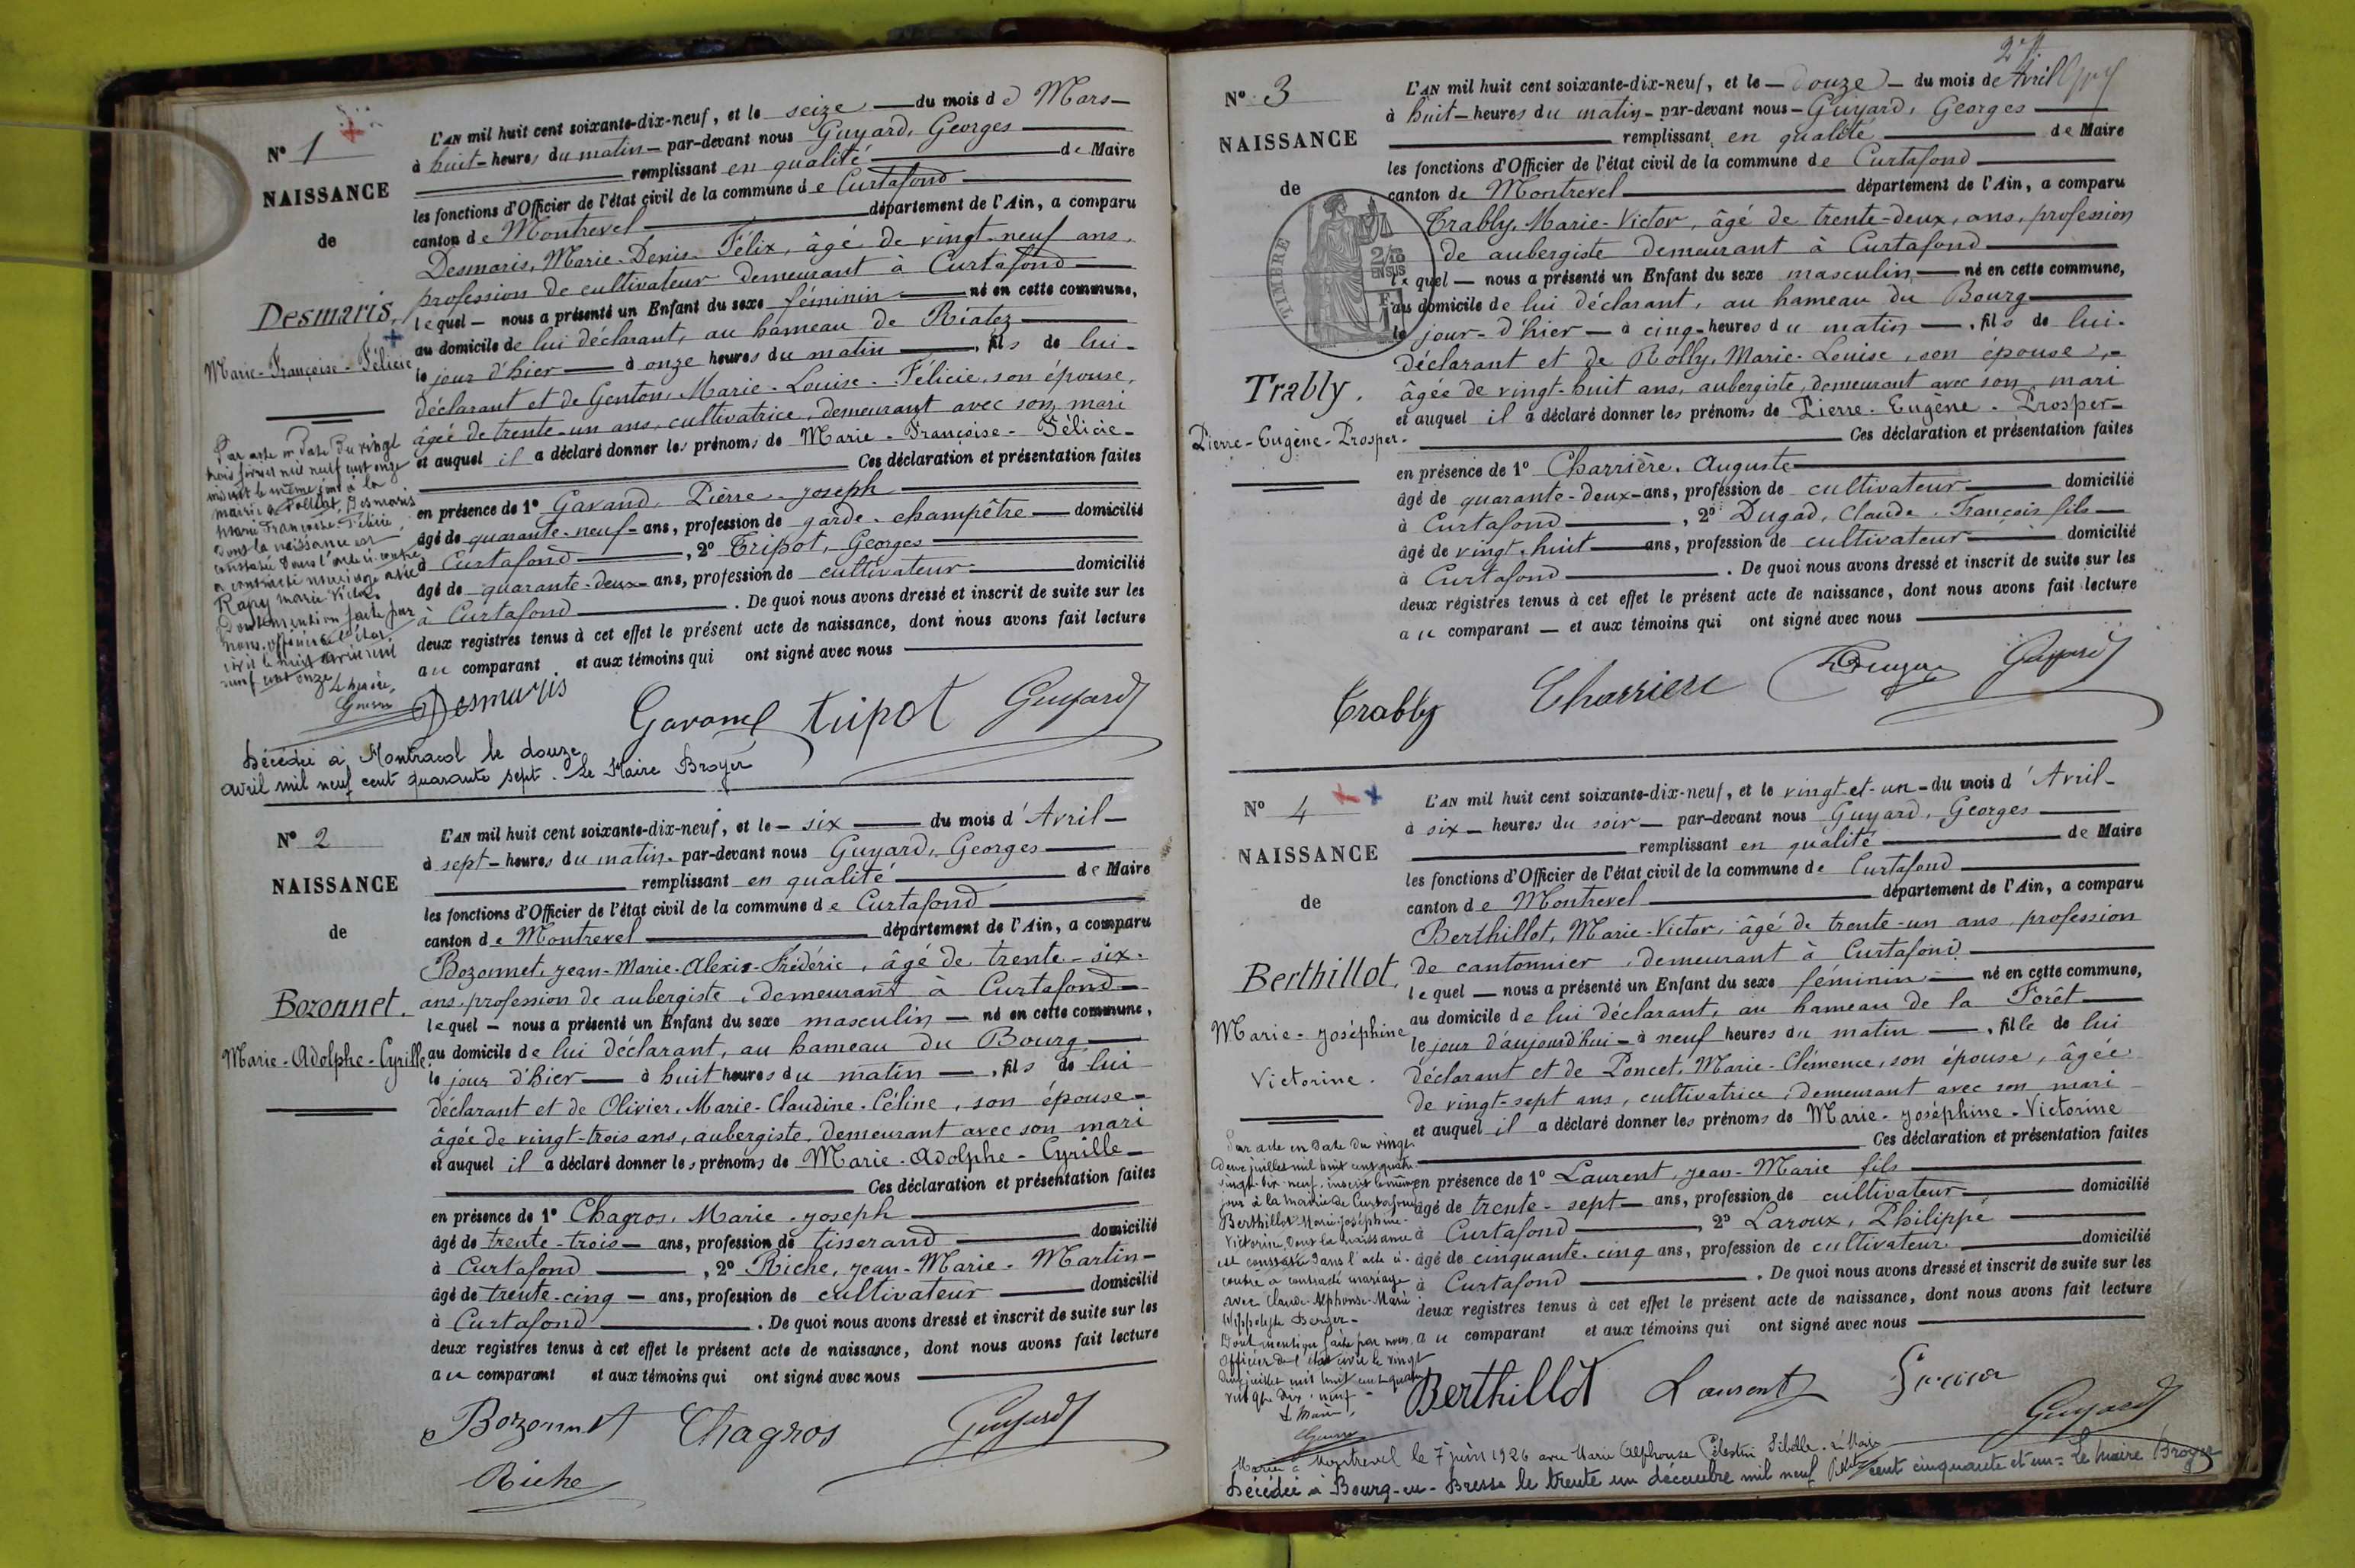 N° 1
NAISSANCE
de
Desmaris,
Marie-Françoise-Félicie
Par acte en date du vingt
trois février mil neuf cent onze
inscrit le même jour à la
mairie de Polliat, Desmaris
Marie Françoise-Félicie,
dont la naissance est
constatée dans l'acte ci-contre
a contracté mariage avec
Rapy Marie Victor
Dont mention faite par
nous, officier de l'état
civil le
neuf cent onze
Le Maire,
L'AN mil huit cent soixante-dix-neuf, et le seize — du mois de Mars —
à huit — heures du matin — par-devant nous Guyard, Georges —
remplissant en qualité — de Maire
les fonctions d'Officier de l'état civil de la commune de Curtafond —
canton de Montrevel — département de l'Ain, a comparu
Desmaris, Marie-Denis-Félix, âgé de vingt-neuf ans,
profession de cultivateur demeurant à Curtafond —
lequel — nous a présenté un Enfant du sexe féminin — né en cette commune,
au domicile de lui déclarant, au hameau de Rialez —
le jour d'hier — à onze heures du matin —, fils de lui-
déclarant et de Genton, Marie-Louise-Félicie, son épouse,
âgée de trente-un ans, cultivatrice, demeurant avec son mari
et auquel il a déclaré donner les prénoms de Marie-Françoise-Félicie-
Ces déclaration et présentation faites
en présence de 1° Gavand, Pierre-Joseph —
âgé de quarante-neuf-ans, profession de garde-champêtre — domicilié
à Curtafond —, 2° Tripot, Georges —
âgé de quarante-deux-ans, profession de cultivateur — domicilié
à Curtafond —. De quoi nous avons dressé et inscrit de suite sur les
deux registres tenus à cet effet le présent acte de naissance, dont nous avons fait lecture
au comparant et aux témoins qui ont signé avec nous —
Desmaris Gavand tripot Guyard
Décédée à Montracol le douze
avril mil neuf cent quarante sept. Le Maire Broyer
N° 2
NAISSANCE
de
Bozonnet.
Marie-Adolphe-Cyrille.
L'AN mil huit cent soixante-dix-neuf, et le — six — du mois d'Avril —
à sept — heures du matin. par-devant nous Guyard, Georges —
remplissant en qualité — de Maire
les fonctions d'Officier de l'état civil de la commune de Curtafond —
canton de Montrevel — département de l'Ain, a comparu
Bozonnet, Jean-Marie-Alexis-Frédéric, âgé de trente-six-
ans, profession de aubergiste, demeurant à Curtafond —
lequel — nous a présenté un Enfant du sexe masculin — né en cette commune,
au domicile de lui déclarant, au hameau du Bourg —
le jour d'hier — à huit heures du matin —, fils de lui
déclarant et de Olivier, Marie-Claudine-Céline, son épouse-
âgée de vingt-trois ans, aubergiste, demeurant avec son mari
et auquel il a déclaré donner les prénoms de Marie-Adolphe-Cyrille —
Ces déclaration et présentation faites
en présence de 1° Chagros, Marie-Joseph —
âgé de trente-trois — ans, profession de tisserand — domicilié
à Curtafond —, 2° Riche, Jean-Marie-Martin-
âgé de trente-cinq — ans, profession de cultivateur — domicilié
à Curtafond —. De quoi nous avons dressé et inscrit de suite sur les
deux registres tenus à cet effet le présent acte de naissance, dont nous avons fait lecture
au comparant et aux témoins qui ont signé avec nous —
Bozonnet Chagros Guyard
Riche
N° 3
NAISSANCE
de
TIMBRE
2/10
EN SUS
Trably.
Pierre-Eugène-Prosper.
L'AN mil huit cent soixante-dix-neuf, et le — douze — du mois de Avril
à huit — heures du matin — par-devant nous — Guyard, Georges —
remplissant en qualité — de Maire
les fonctions d'Officier de l'état civil de la commune de Curtafond —
canton de Montrevel — département de l'Ain, a comparu
Trably, Marie-Victor, âgé de trente-deux, ans, profession
de aubergiste demeurant à Curtafond —
lequel — nous a présenté un Enfant du sexe masculin — né en cette commune,
au domicile de lui déclarant, au hameau du Bourg —
le jour-d'hier — à cinq-heures du matin —, fils de lui-
déclarant et de Rolly, Marie-Louise, son épouse,-
âgée de vingt-huit ans, aubergiste, demeurant avec son mari
et auquel il a déclaré donner les prénoms de Pierre-Eugène-Prosper-
Ces déclaration et présentation faites
en présence de 1° Charrière, Auguste —
âgé de quarante-deux-ans, profession de cultivateur — domicilié
à Curtafond —, 2° Dugad, Claude-François fils —
âgé de vingt-huit — ans, profession de cultivateur — domicilié
à Curtafond —. De quoi nous avons dressé et inscrit de suite sur les
deux régistres tenus à cet effet le présent acte de naissance, dont nous avons fait lecture
au comparant — et aux témoins qui ont signé avec nous —
Trably Charriere Guyard
N° 4
NAISSANCE
de
Berthillot,
Marie-Joséphine
Victorine.
Par acte en date du vingt
deux juillet mil huit cent quatre
vingt-dix-neuf, inscrit le même
jour à la mairie de Curtafond
Berthillot Marie-Joséphine-
Victorine, dont la naissance
est constatée dans l'acte ci-
contre a contracté mariage
avec Claude-Alphonse-Marie
Hippolyte Berger-
Dont mention faite par nous
Officier de l'état civil le vingt
deux juillet mil huit cent quatre
vingt dix-neuf-
Le Maire,
L'AN mil huit cent soixante-dix-neuf, et le vingt-et-un — du mois d'Avril —
à six — heures du soir — par-devant nous Guyard, Georges —
remplissant en qualité — de Maire
les fonctions d'Officier de l'état civil de la commune de Curtafond —
canton de Montrevel — département de l'Ain, a comparu
Berthillot, Marie-Victor, âgé de trente-un ans, profession
de cantonnier, demeurant à Curtafond —
lequel — nous a présenté un Enfant du sexe féminin — né en cette commune,
au domicile de lui déclarant, au hameau de la Forêt —
le jour d'aujourd'hui — à neuf heures du matin —, fille de lui
déclarant et de Poncet, Marie-Clémence, son épouse, âgée
de vingt-sept ans, cultivatrice, demeurant avec son mari
et auquel il a déclaré donner les prénoms de Marie-Joséphine-Victorine
Ces déclaration et présentation faites
en présence de 1° Laurent, Jean-Marie fils —
âgé de trente-sept — ans, profession de cultivateur — domicilié
à Curtafond —, 2° Laroux, Philippe —
âgé de cinquante-cinq ans, profession de cultivateur — domicilié
à Curtafond —. De quoi nous avons dressé et inscrit de suite sur les
deux registres tenus à cet effet le présent acte de naissance, dont nous avons fait lecture
au comparant et aux témoins qui ont signé avec nous —
Berthillot Laurent Guyard
Mariée à Montrevel le 7 juin 1926 avec Marie Alphonse Célestin
Décédée à Bourg-en-Bresse le trente un décembre mil neuf cent cinquante et un = Le Maire Broyer